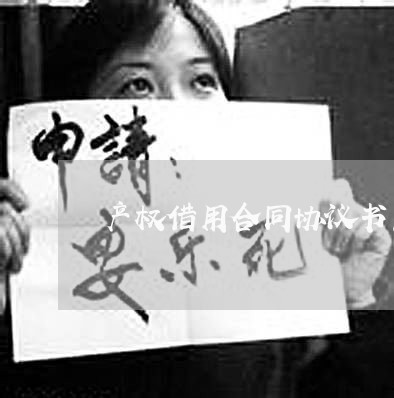 申請：
产权借用合同协议书
安乐死